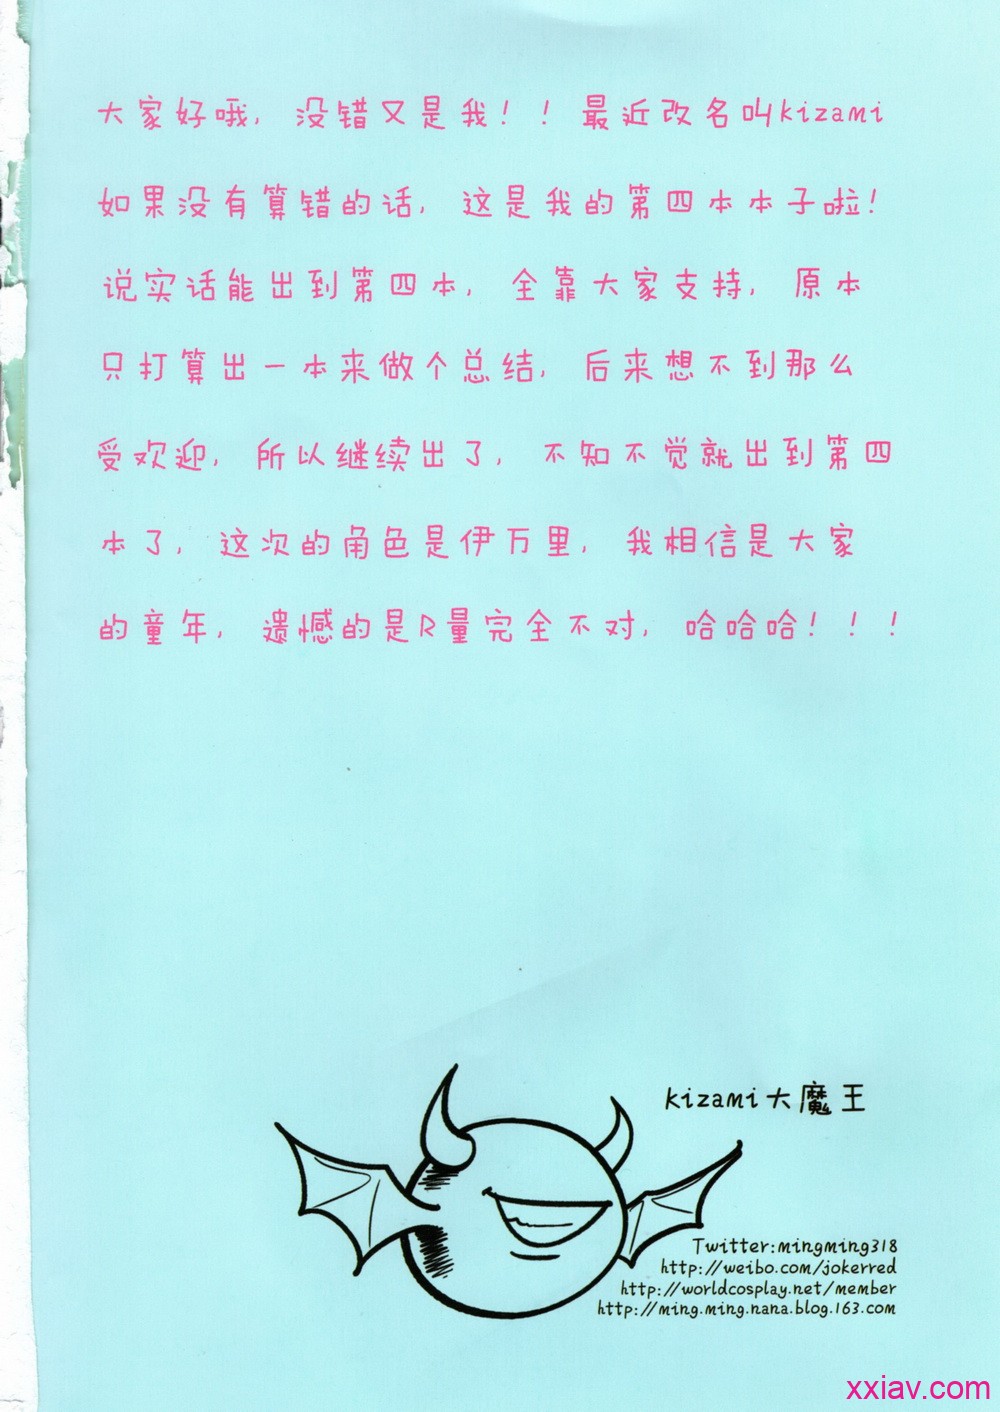 大家好哦，没错又是我！！最近改名叫kizami
如果没有算错的话，这是我的第四本本子啦！
说实话能出到第四本，全靠大家支持，原本
只打算出一本来做个总结，后来想不到那么
受欢迎，所以继续出了，不知不觉就出到第四
本了，这次的角色是伊万里，我相信是大家
的童年，遗憾的是R量完全不对，哈哈哈！！！
kizami大魔王
Twitter:mingming318
http://weibo.com/jokerred
http://worldcosplay.net/member
http://ming.ming.nana.blog.163.com
xxiav.com